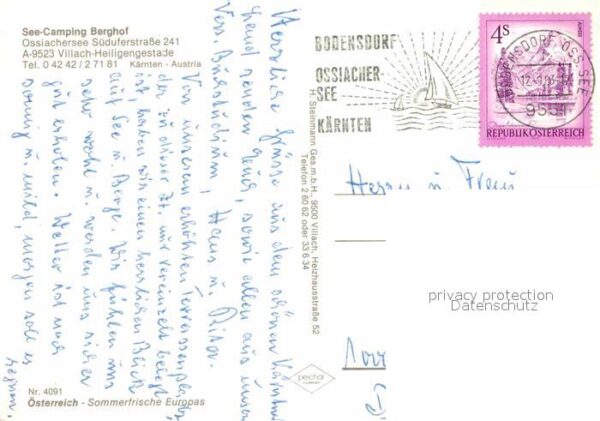 See-Camping Berghof
Ossiachersee Süduferstraße 241
A-9523 Villach-Heiligengestade
Tel. 0 42 42 / 2 71 81 Kärnten - Austria
Herzliche Grüsse aus dem schönen Kärntner
Land senden Euch, sowie allen aus unserer
Hans u.
Von unserem erhöhten Terrassenplatz
der zu dieser Zt. nur vereinzelt belegt
ist, haben wir einen herrlichen Blick
auf See u. Berge. Wir fühlen uns
sehr wohl u. werden uns sicher
gut erholen. Wetter ist noch
sonnig u. mild, morgen soll es
regnen.
Nr. 4091
Österreich - Sommerfrische Europas
H. Steinmann Ges.m.b.H., 9500 Villach, Heizhausstraße 52
Telefon 2 60 62 oder 33 6 34
BODENSDORF
OSSIACHER-
SEE
KÄRNTEN
4s
REPUBLIK ÖSTERREICH
Herrn u. Frau
privacy protection
Datenschutz